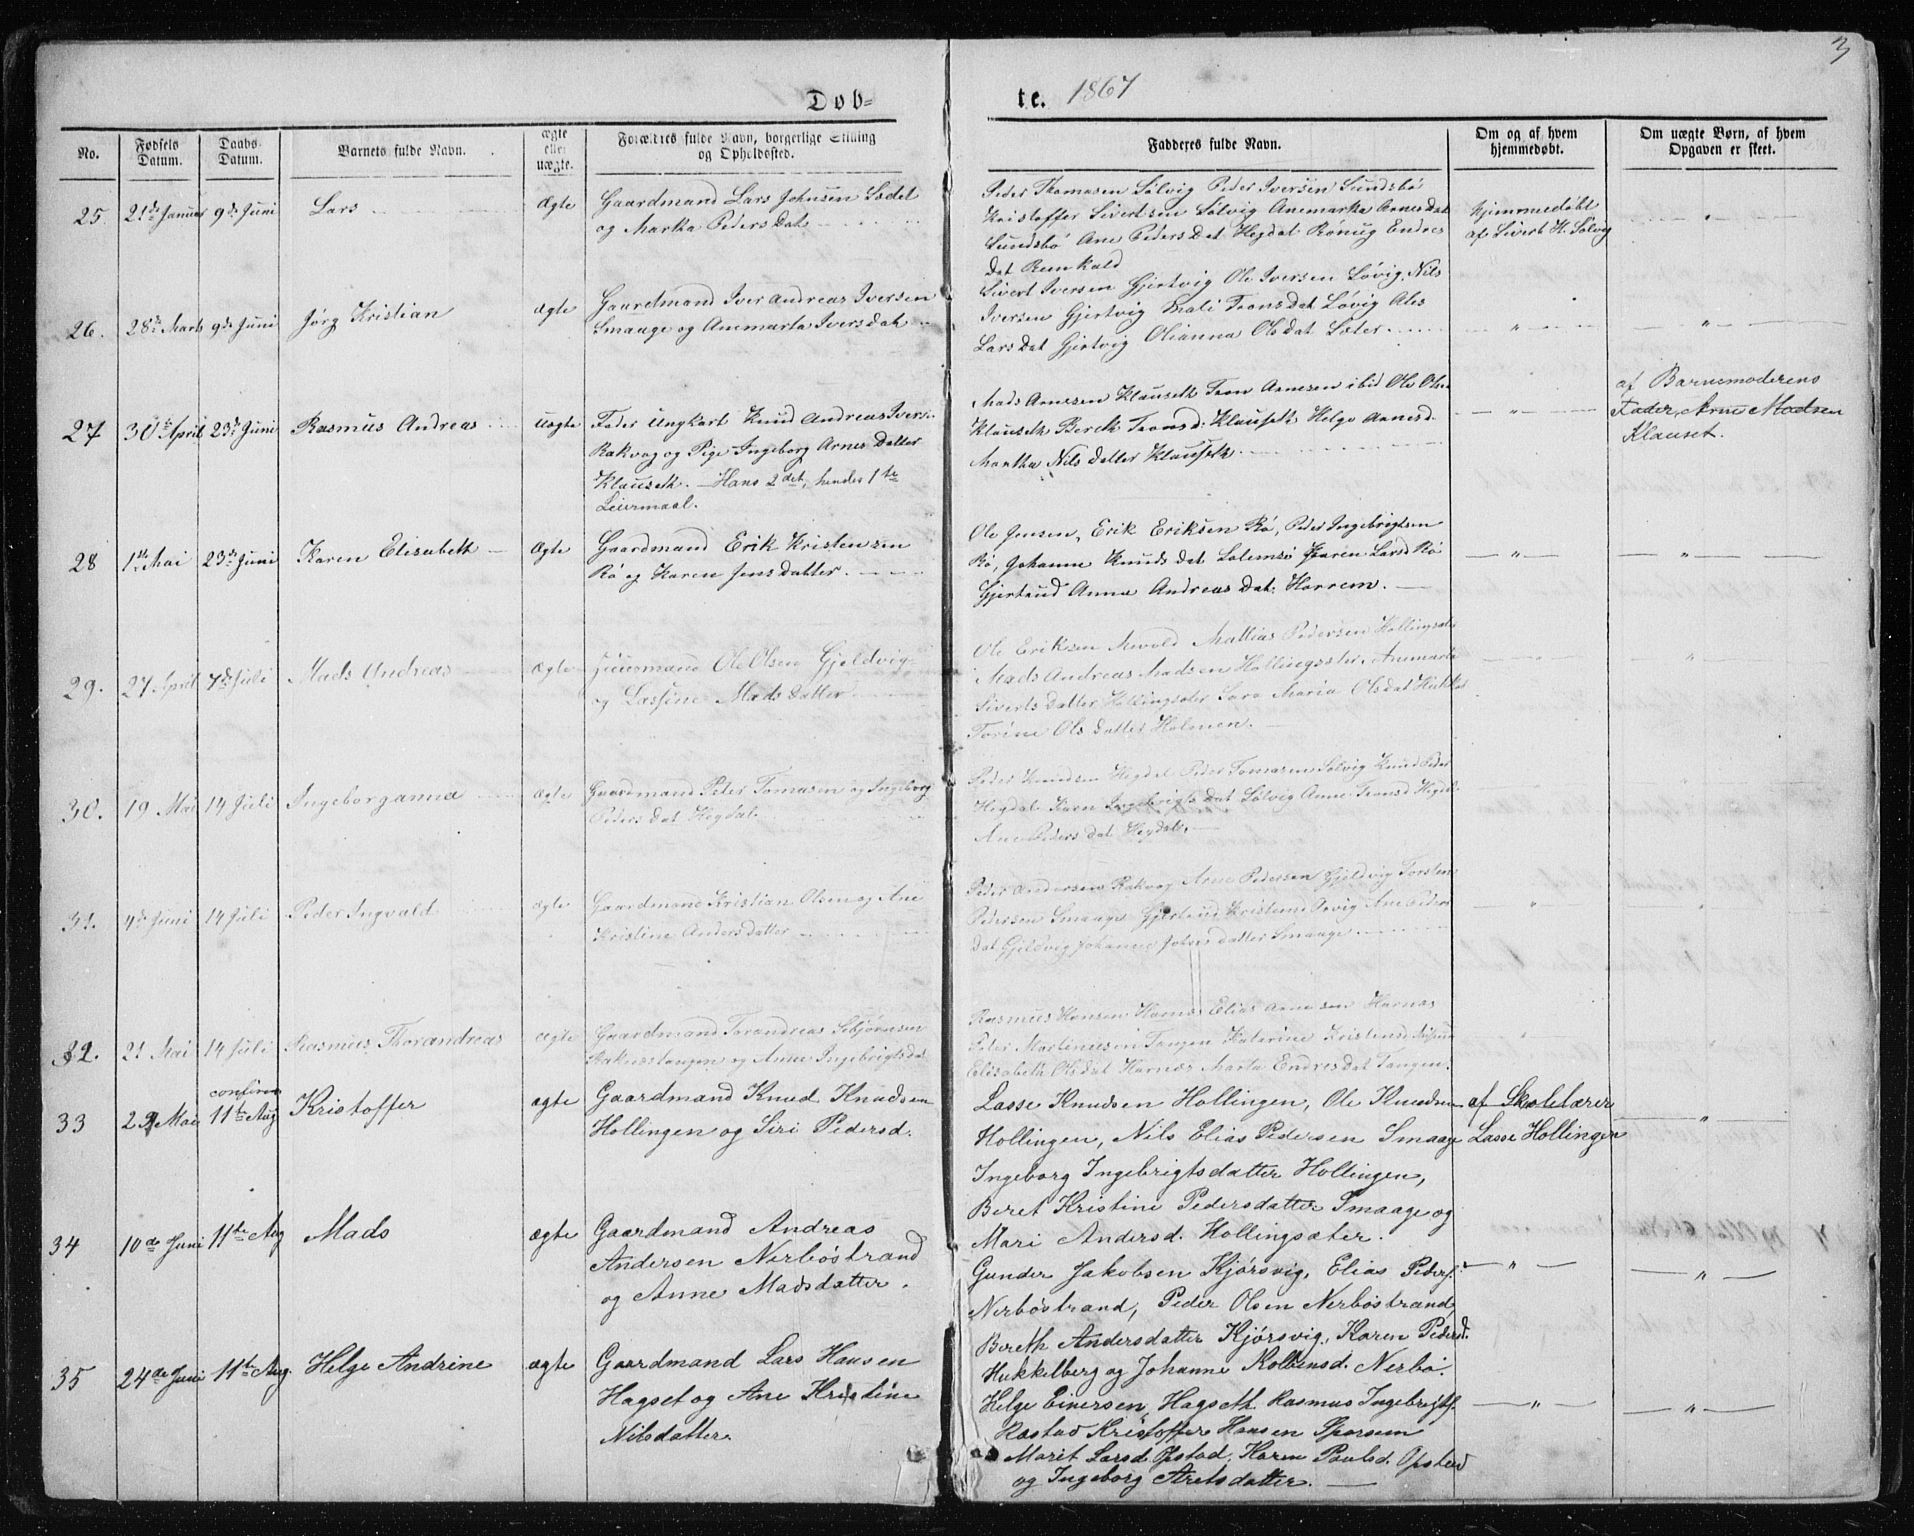 3
Døb=
te. 1867
No.
Fødsels Datum.
Daabs Datum.
Barnets fulde Navn.
ægte eller uægte.
Forældres fulde Navn, borgerlige Stilling og Opholdssted.
Fadderes fulde Navn.
Om og af hvem hjemmedøbt.
Om uægte Børn, af hvem Opgaven er skeet.
25. 21de Januar 9de Juni Lars Ægte
Gaardmand Lars Johnsen Sædet
og Martha Peders Dat
Peder Thomasen Sølvig Peder Iversen Sundsbø
Kristoffer Sivertsen Sølvig Anemarta Arnesdat
Sundsbø Ane Pedersdat Hegdal Ronnug Endres
Dat
hjemmedøbt
af Sivert H. Sølvig
26. 28de Marts 9de Juni Jørg Kristian Ægte
Gaardmand Iver Andreas Iversen
Smaage og Anemarta Iversdat
Sivert Iversen Gjertvig Ole Iversen Løvig, Nils
Iversen Gjertvig Mali Tronsdat Løvig Ales
Larsdat Gjertvig Olianna Olsdat Sæter
27 30te April 23de Juni Rasmus Andreas Uægte
Fader Ungkarl Knud Andreas Ivers.
Rakvog og Pige Ingeborg Arnes Datter
Klauseth. Hans 2det, hendes 1te
Leiermaal.
Mads Arnesen Klauseth Tron Arnesen ibid Ole Olsn
Klauseth Bereth Tronsd. Klauseth Helge Arnesd.
Martha Nils Datter Klauseth
af Barnemoderens
Fader, Arne Madsen
Klauset.
28 1ste Mai 23de Juni Karen Elisabeth Ægte
Gaardmand Erik Kristensen
Rø og Karen Jens datter.
Ole Jensen, Erik Eriksen Rø, Peder Ingebrigtsen
Rø, Johanne Knudsdat Solemsø Karen Larsd Rø
Gjertrud Anna Andreas Dat. Harrem.
29. 27 April 7de Juli Mads Andreas Ægte
Huusmand Ole Olsen Gjeldvig
og Lassine Mads Datter
Ole Eriksen Mattias Pedersen Hollingsæter
Mads Andreas Madsen Hollingsæter, Anemarta
Siverts Datter Hollingsæter Sara Maria Olsdat
Torine Ols Datter Holmen.
30. 19 Mai 14 Juli Ingeborganna Ægte
Gaardmand Peter Tomasen og Ingeborg
Peders Dat Hegdal.
Peder Knudsen Hegdal Peder Tomasen Sølvig Knud Peder
Hegdal Karn Ingebrigts Dat Sølvig Anne Tronsd Hegdal
Ane Peders Dat Hegdal.
31. 4de Juni 14 Juli Peder Ingvald Ægte
Gaardmand Kristian Olsen og Ane
Kristine Anders Datter
Peder Andersen Rakvog Arne Pedersen Gjeldvig Torsten
Pedersen Smaage Gjertrud Kristensd Ane Peders
Dat Gjeldvig Johanne Datter Smaage
32. 21 Mai 14 Juli Rasmus Thorandreas Ægte
Gaardmand Torandreas
og Anne Ingebrigtsdat
Rasmus Hansen Harnæs Elias Arnesen Harnæs
Peter Martinusen Tangen Katarine Kristensd
Elisabeth Olsdat Harnæs Marta Endresdat Tangen.
33 Mai confirm 11te Aug Kristoffer ægte
Gaardmand Knud Knudsen
Hollingen og Siri Pedersd.
Lasse Knudsen Hollingen, Ole Knudsen
Hollingen, Nils Elias Pedersen Smaage
Ingeborg Ingebrigtsdatter Hollingen,
Beret Kristine Pedersdatter Smaage og
Mari Andersd. Hollingsæter.
af Skolelærer
Lasse Hollingen
34 10de Juni 11te Aug Mads ægte
Gaardmand Andreas
Andersen Nerbøstrand
og Anne Madsdatter.
Gunder Jakobsen Kjørsvig, Elias Peders.
Nerbøstrand, Peder Olsen Nerbøstrand,
Bereth Andersdatter Kjørsvig, Karen Pedersd.
Hukkelberg og Johanne Kolbensd. Nerbø.
35 24de Juni 11te Aug. Helge Andrine ægte
Gaardmand Lars Hansen
Hagset og Ane Kristine
Nilsdatter
Helge Einersen Hagseth Rasmus Ingebrigts.
Røstad Kristoffer Hansen
Marit Larsd. Opstad, Karen Paulsd. Opstad
og Ingeborg Aretsdatter.